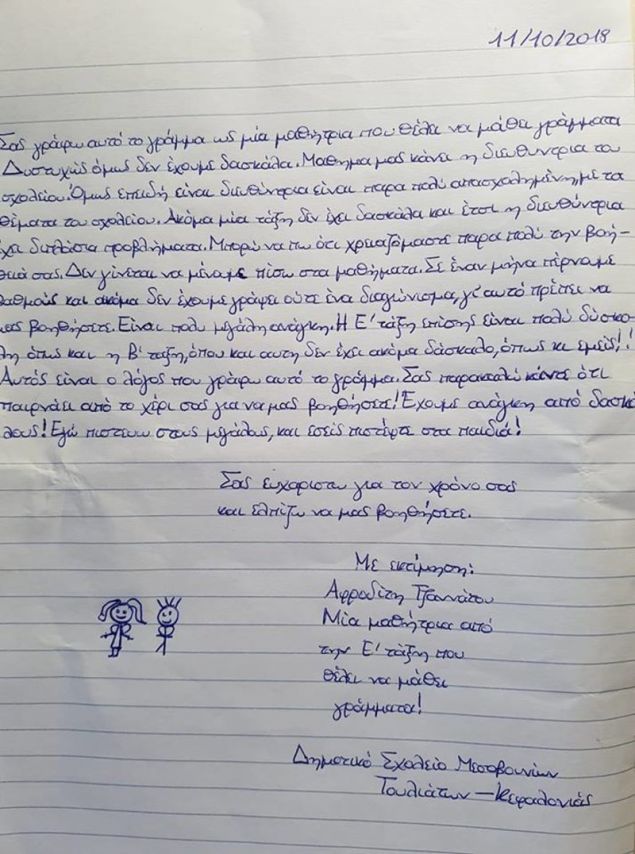 11/10/2018
Σας γράφω αυτό το γράμμα ως μία μαθήτρια που θέλει να μάθει γράμματα
Δυστυχώς όμως δεν έχουμε δασκάλα. Μαθημα μας κάνει η διευθύντρια του
σχολείου. Όμως επειδή είναι διευθύντρια είναι παρα πολύ απασχολημένη, με τα
θέματα του σχολείου. Ακόμα μία τάξη δεν έχει δασκάλα και έτσι η διευθύντρια
έχει διπλάσια προβλήματα. Μπορώ να πω ότι χρειαζόμαστε παρα πολύ την βοή-
θειά σας. Δεν γίνεται να μένουμε πίσω στα μαθήματα. Σε έναν μήνα πέρνουμε
βαθμούς και ακόμα δεν έχουμε γράψει ούτε ένα διαγώνισμα, γι' αυτό πρέπει να
μας βοηθήσετε. Είναι πολύ μεγάλη ανάγκη. Η Ε' τάξη επίσης είναι πολύ δύσκο-
λη όπως και η Β' τάξη, όπου και αυτη δεν έχει ακόμα δάσκαλο, όπως κι εμείς!!
Αυτός είναι ο λόγος που γράφω αυτό το γράμμα. Σας παρακαλώ κάντε ότι
παιρνάει από το χέρι σας για να μας βοηθήσετε! Έχουμε ανάγκη από δασκά
λους! Εγώ πιστευω στους μεγάλους, και εσείς πιστέψτε στα παιδιά!
Σας ευχαριστω για τον χρόνο σας
και ελπίζω να μας βοηθήσετε.
Με εκτίμηση:
Αφροδίτη Τζαννάτου
Μία μαθήτρια από
την Ε' τάξη που
θέλει να μάθει
γράμματα!
Δημοτικό Σχολείο Μεσοβουνίων
Τουλιάτων - Κεφαλονιάς